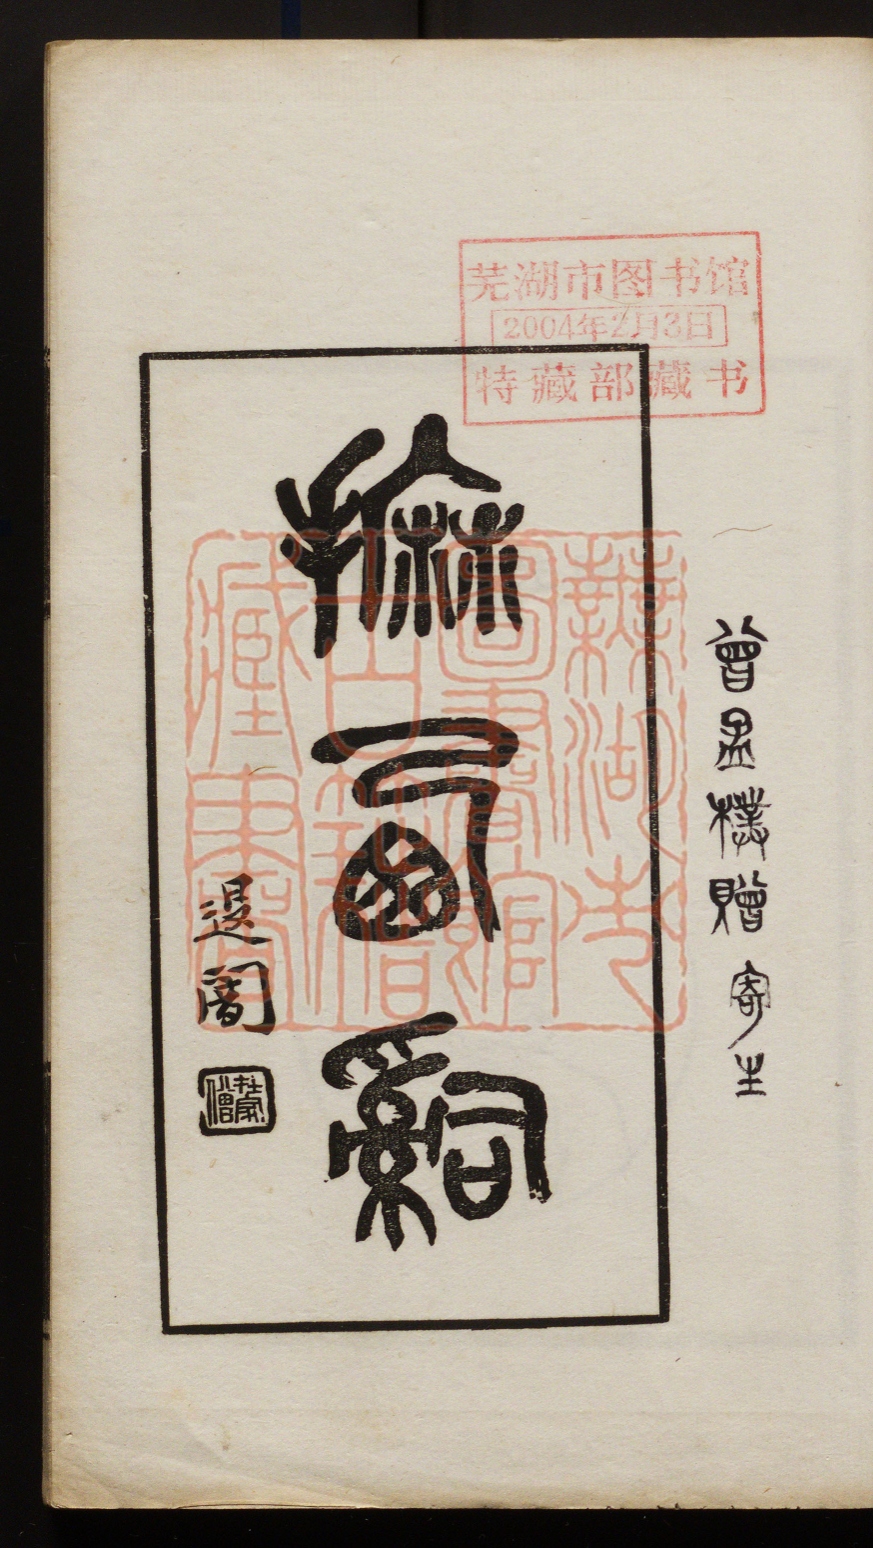 芜湖市图书馆
2004年2月3日
特藏部藏书
曾孟樸贈 寄生
摩西詞
退闇
在家僧
蕪湖市
圖書館
古籍
藏書